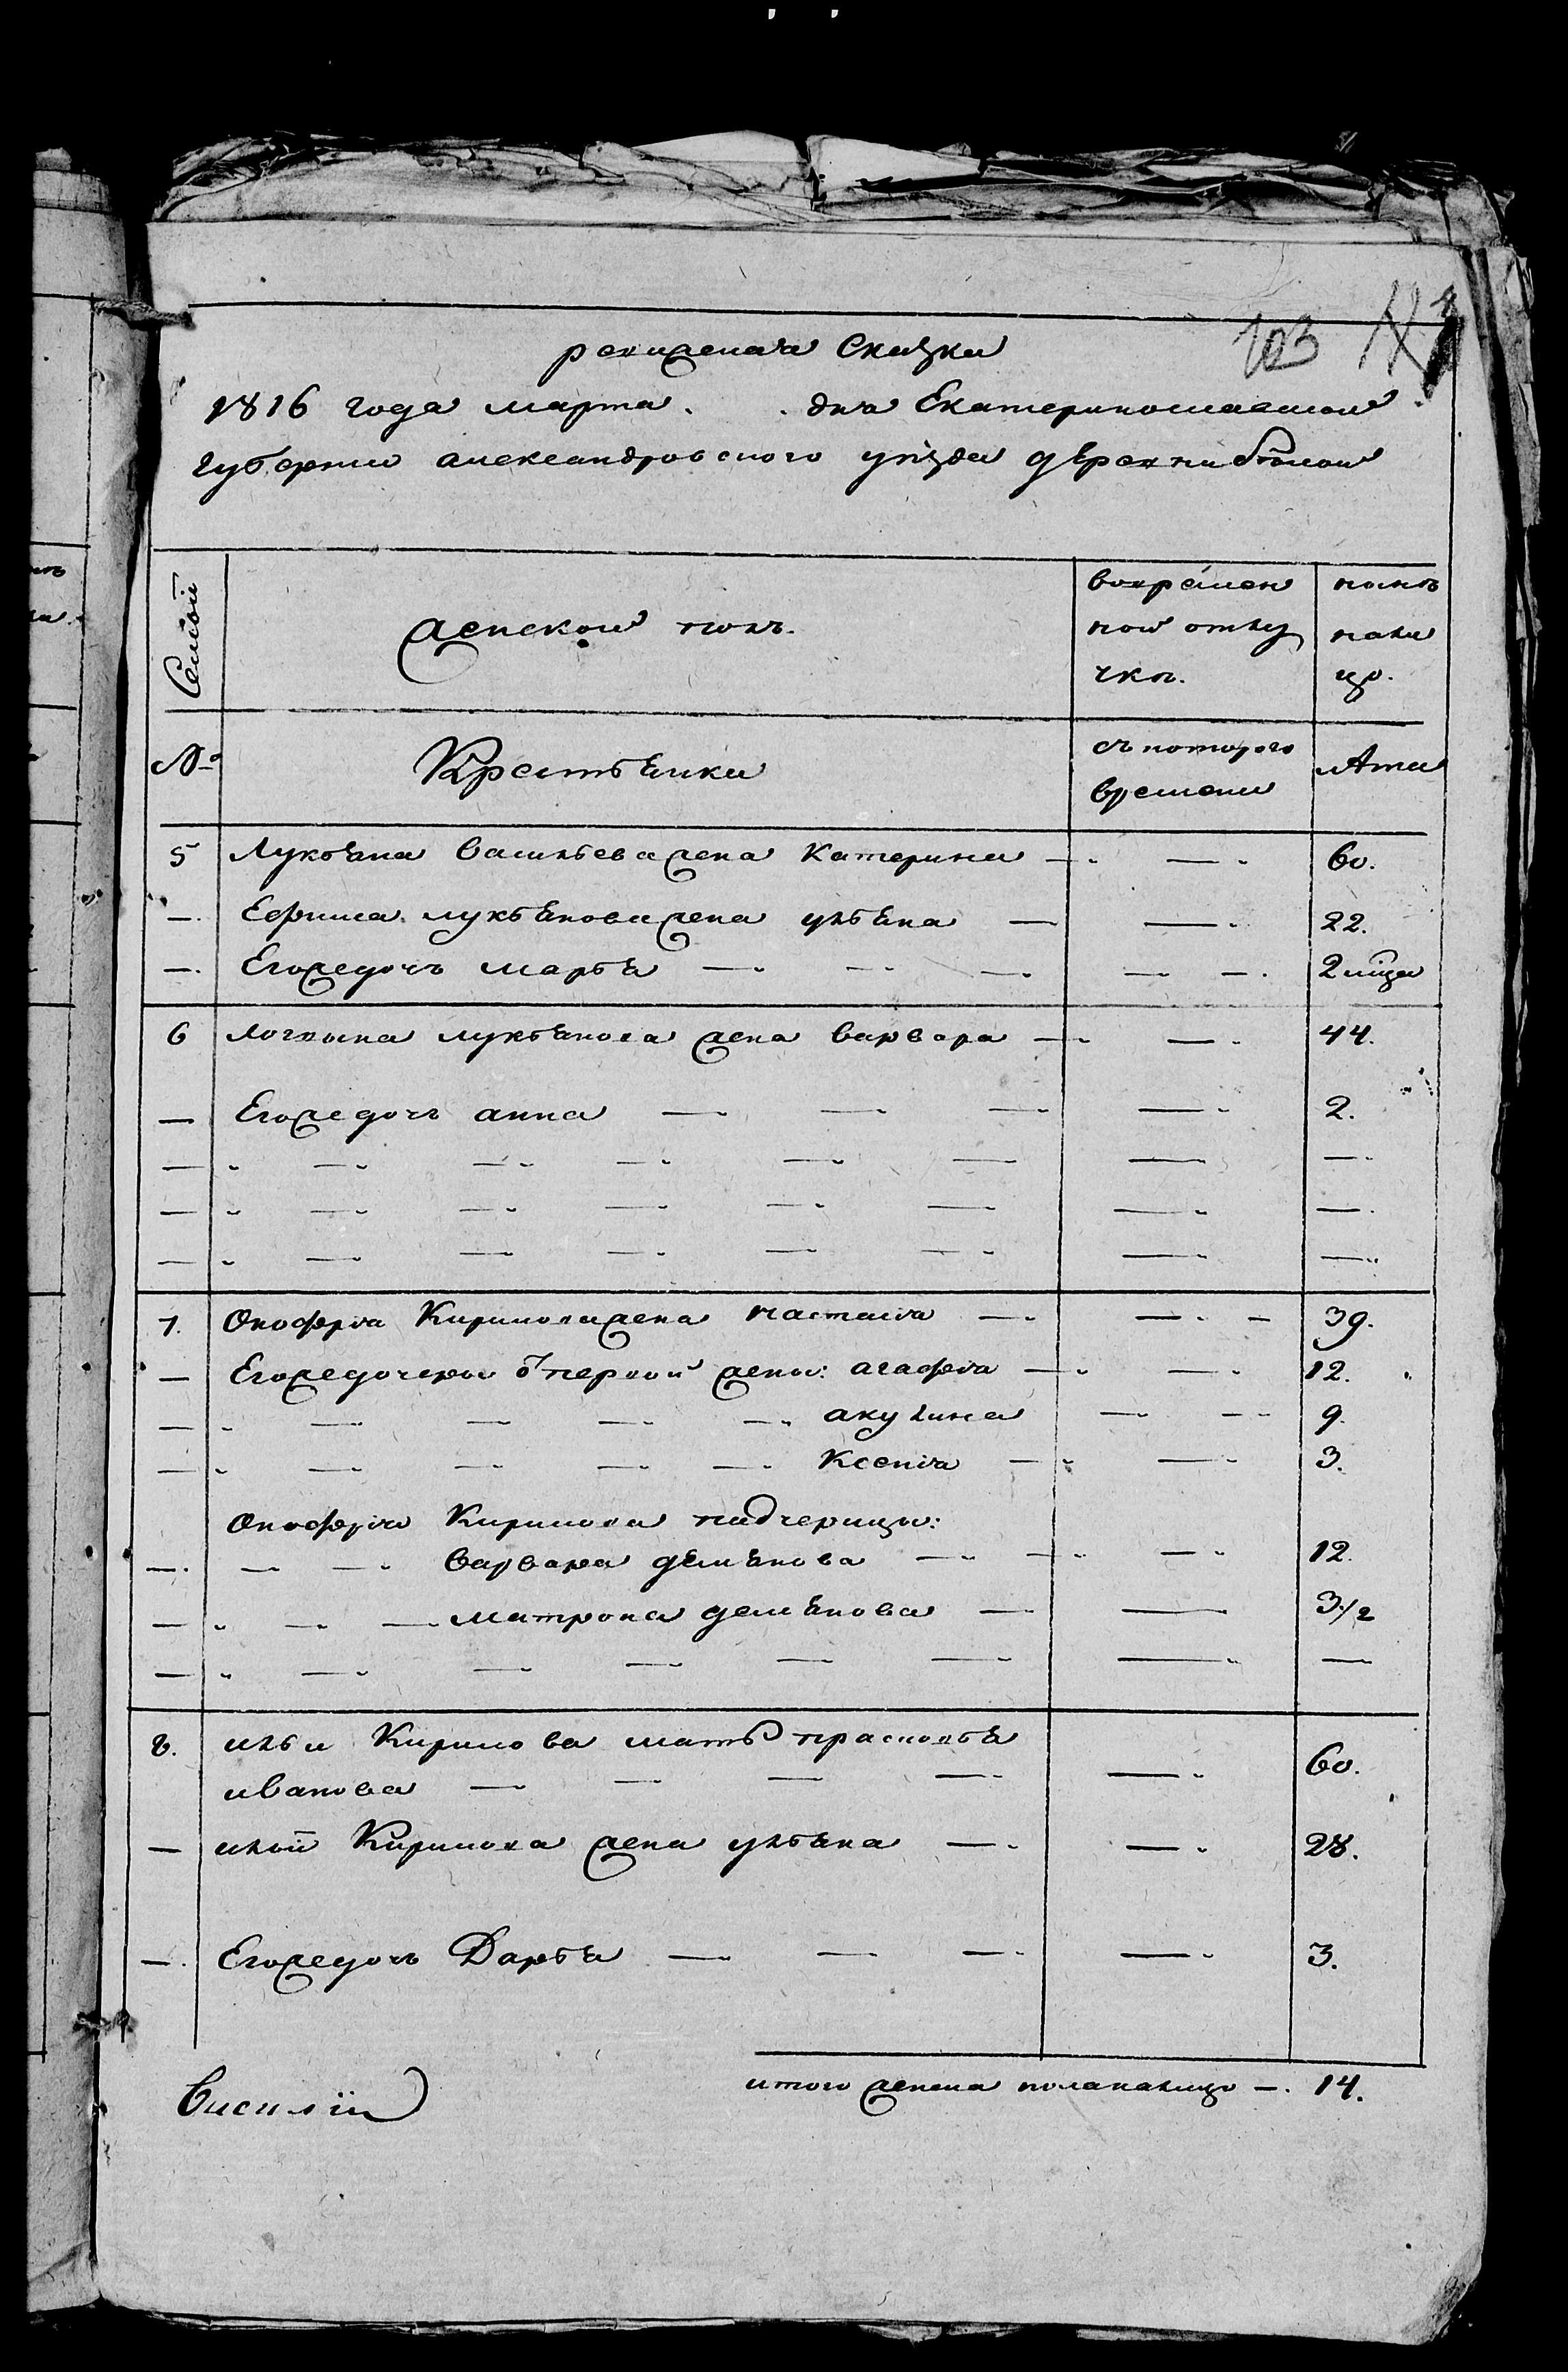 103
ревижская Сказка
1816 года марта . . дня Екатеринославской
губернии александровского уѣзда деревни белой
Семьи
женской полъ.
вовремен
ной отлу
чкѣ.
нынѣ
нали
цо.
№
Крестьянки
съ которого
времени
лѣта
5 Лукьяна Васильева жена Катерина — 60.
—. Ефима лукьянова жена ульяна — 22.
—. Его же дочь марья — 2 мца
6 логвина лукьянова жена варвара — 44.
— Его же дочь анна — 2.
7. Онофрія Кирилова жена настасія — 39.
— Его же дочери от первой жены: агафія — 12.
— акулина — 9.
— Ксенія — 3.
Онофрія Кирилова падчерицы:
—. варвара демьянова — 12.
— матрона демьянова — 3 1/2
8. ильи Кирилова мать прасковья
иванова — 60.
— ильи Кирилова жена ульяна — 28.
—. Его же дочь Дарья — 3.
итого женска пола налицо —. 14.
Василій